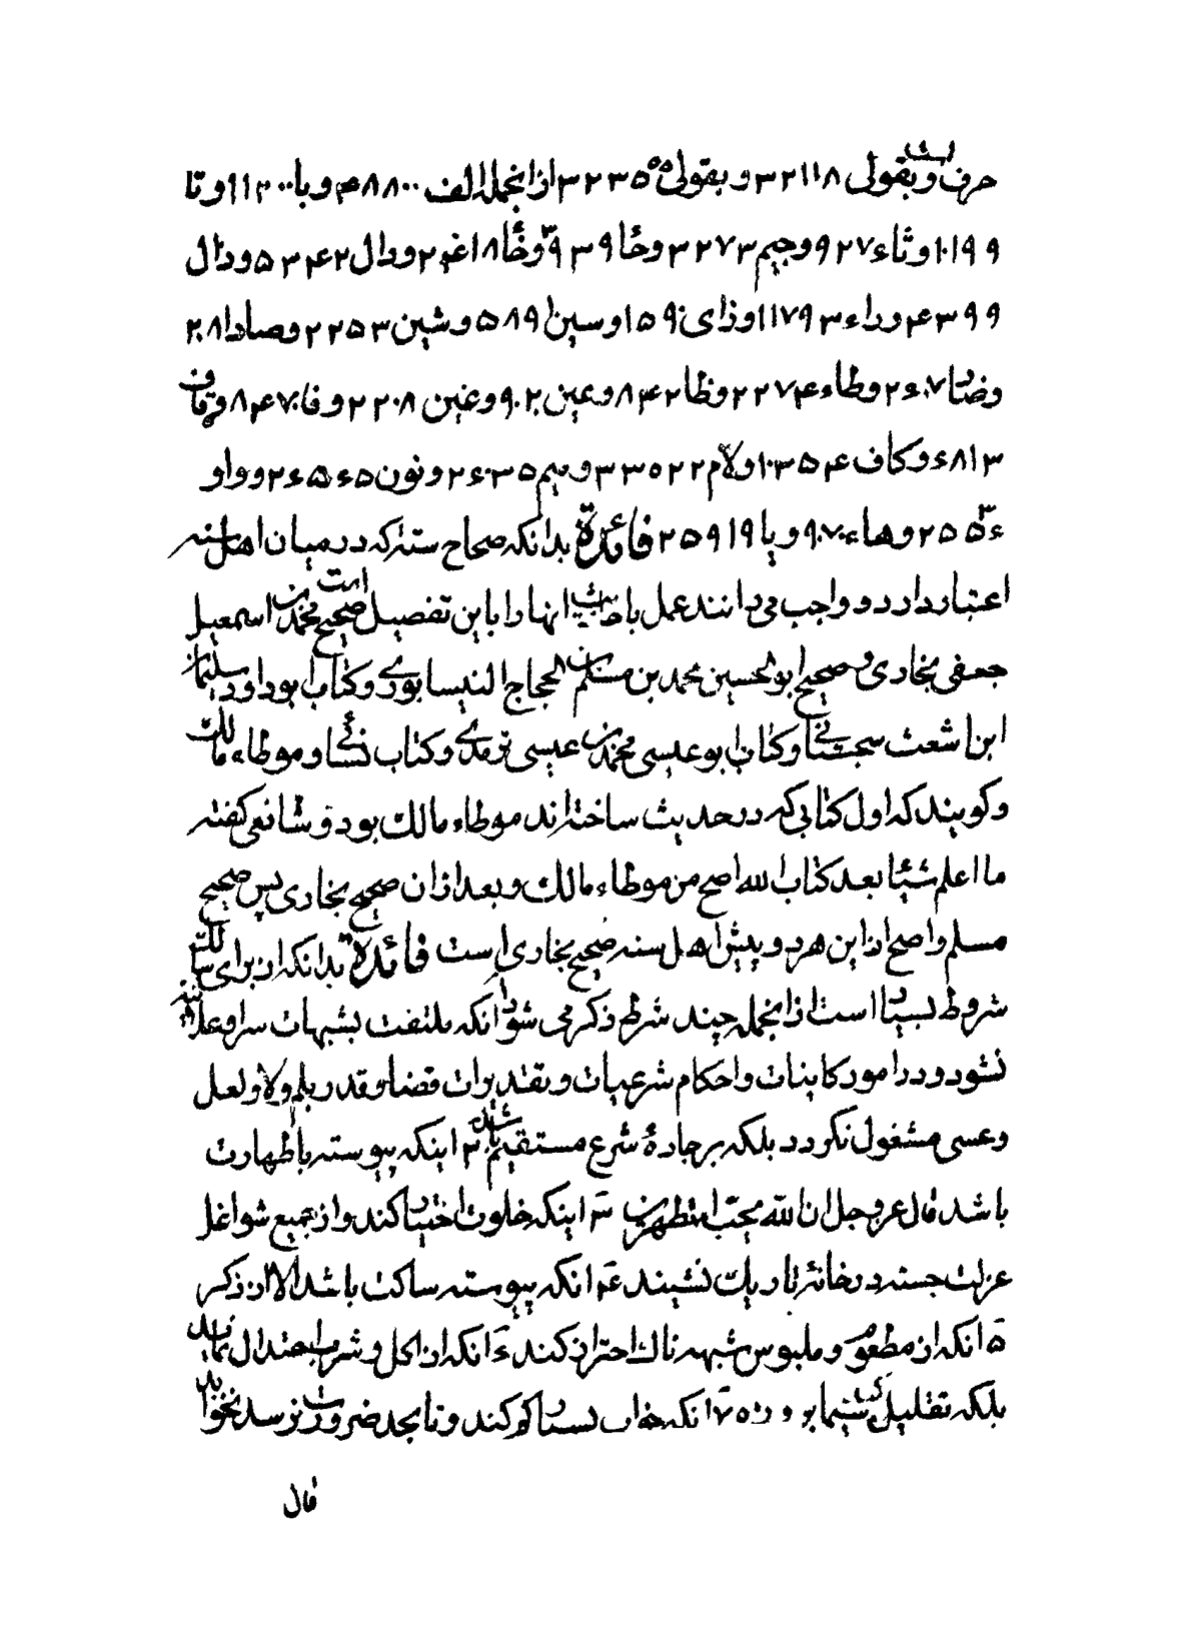 حرف است و بقولی ۳۲۱۱۸ و بقولی ۳۲۳۵۵۵ ازانجمله الف ۴۸۸۰۰ و با ۱۱۲۰۰ و تا
۱۰۱۹۹ و ثاء ۹۲۷ و جیم ۳۲۷۳ و حا ۳۹۳۹ و خا
و دال و ذال
۴۳۹۹ و راء ۱۱۷۹۳ و زای ۱۵۹ و سین ۵۸۹ و شین ۲۲۵۳ و صاد
وضاد و طاء ۲۲۷۴ و ظا ۸۴۲ و عین ۹۰۲ و غین ۲۲۰۸ و فا ۸۴۷۰ و قاف
و کاف ۱۰۳۵۴ و لام ۳۳۵۲۲ و میم و نون و واو
و هاء ۹۰۷۰ و یا ۲۵۹۱۹ فائدة بدانکه صحاح سته که در میان اهل سنه
اعتبار دارد و واجب می دانند عمل باحادیث انها را باین تفصیل است صحیح محمد بن اسمعیل
جعفی بخاری و صحیح ابو الحسین محمد بن مسلم بن الحجاج النیسابوری و کتاب ابوداود سلیمان
ابن اشعث سجستانی و کتاب ابو عیسی محمد بن عیسی ترمدی و کتاب نسائی و موطاء مالک
و کویند که اول کتابی که در حدیث ساخته اند موطاء مالک بود و شافعی کفته
ما اعلم شیئا بعد کتاب الله اصح من موطاء مالک و بعد ازان صحیح بخاری پس صحیح
مسلم و اصح ازین هر دو پیش اهل سنه صحیح بخاری است فائدة بدانکه از برای سالک
شروط بسیار است ازانجمله چند شرط ذکر می شود ۱ انکه ملتفت بشبهات سرا و علانیة
نشود و در امور کاینات و احکام شرعیات و تقدیرات قضا و قدر بلم و لا و لعل
و عسی مشغول نکردد بلکه بر جادهٔ شرع مستقیم باشد ۲ اینکه پیوسته باطهارت
باشد قال عز و جل ان الله یحب المتطهرین ۳ اینکه خلوت اختیار کند و از جمیع شواغل
عزلت جسته در خانهٔ تاریک نشیند ۴ انکه پیوسته ساکت باشد الا از ذکر
۵ انکه از مطعوم و ملبوس شبهه ناک احتراز کند ۶ انکه از اکل و شرب باعتدال نماید
بلکه تقلیل کند سیما بروزه ۷ انکه خواب بسیار کم کند و تا بحد ضرورت نرسد نخوابد
قال